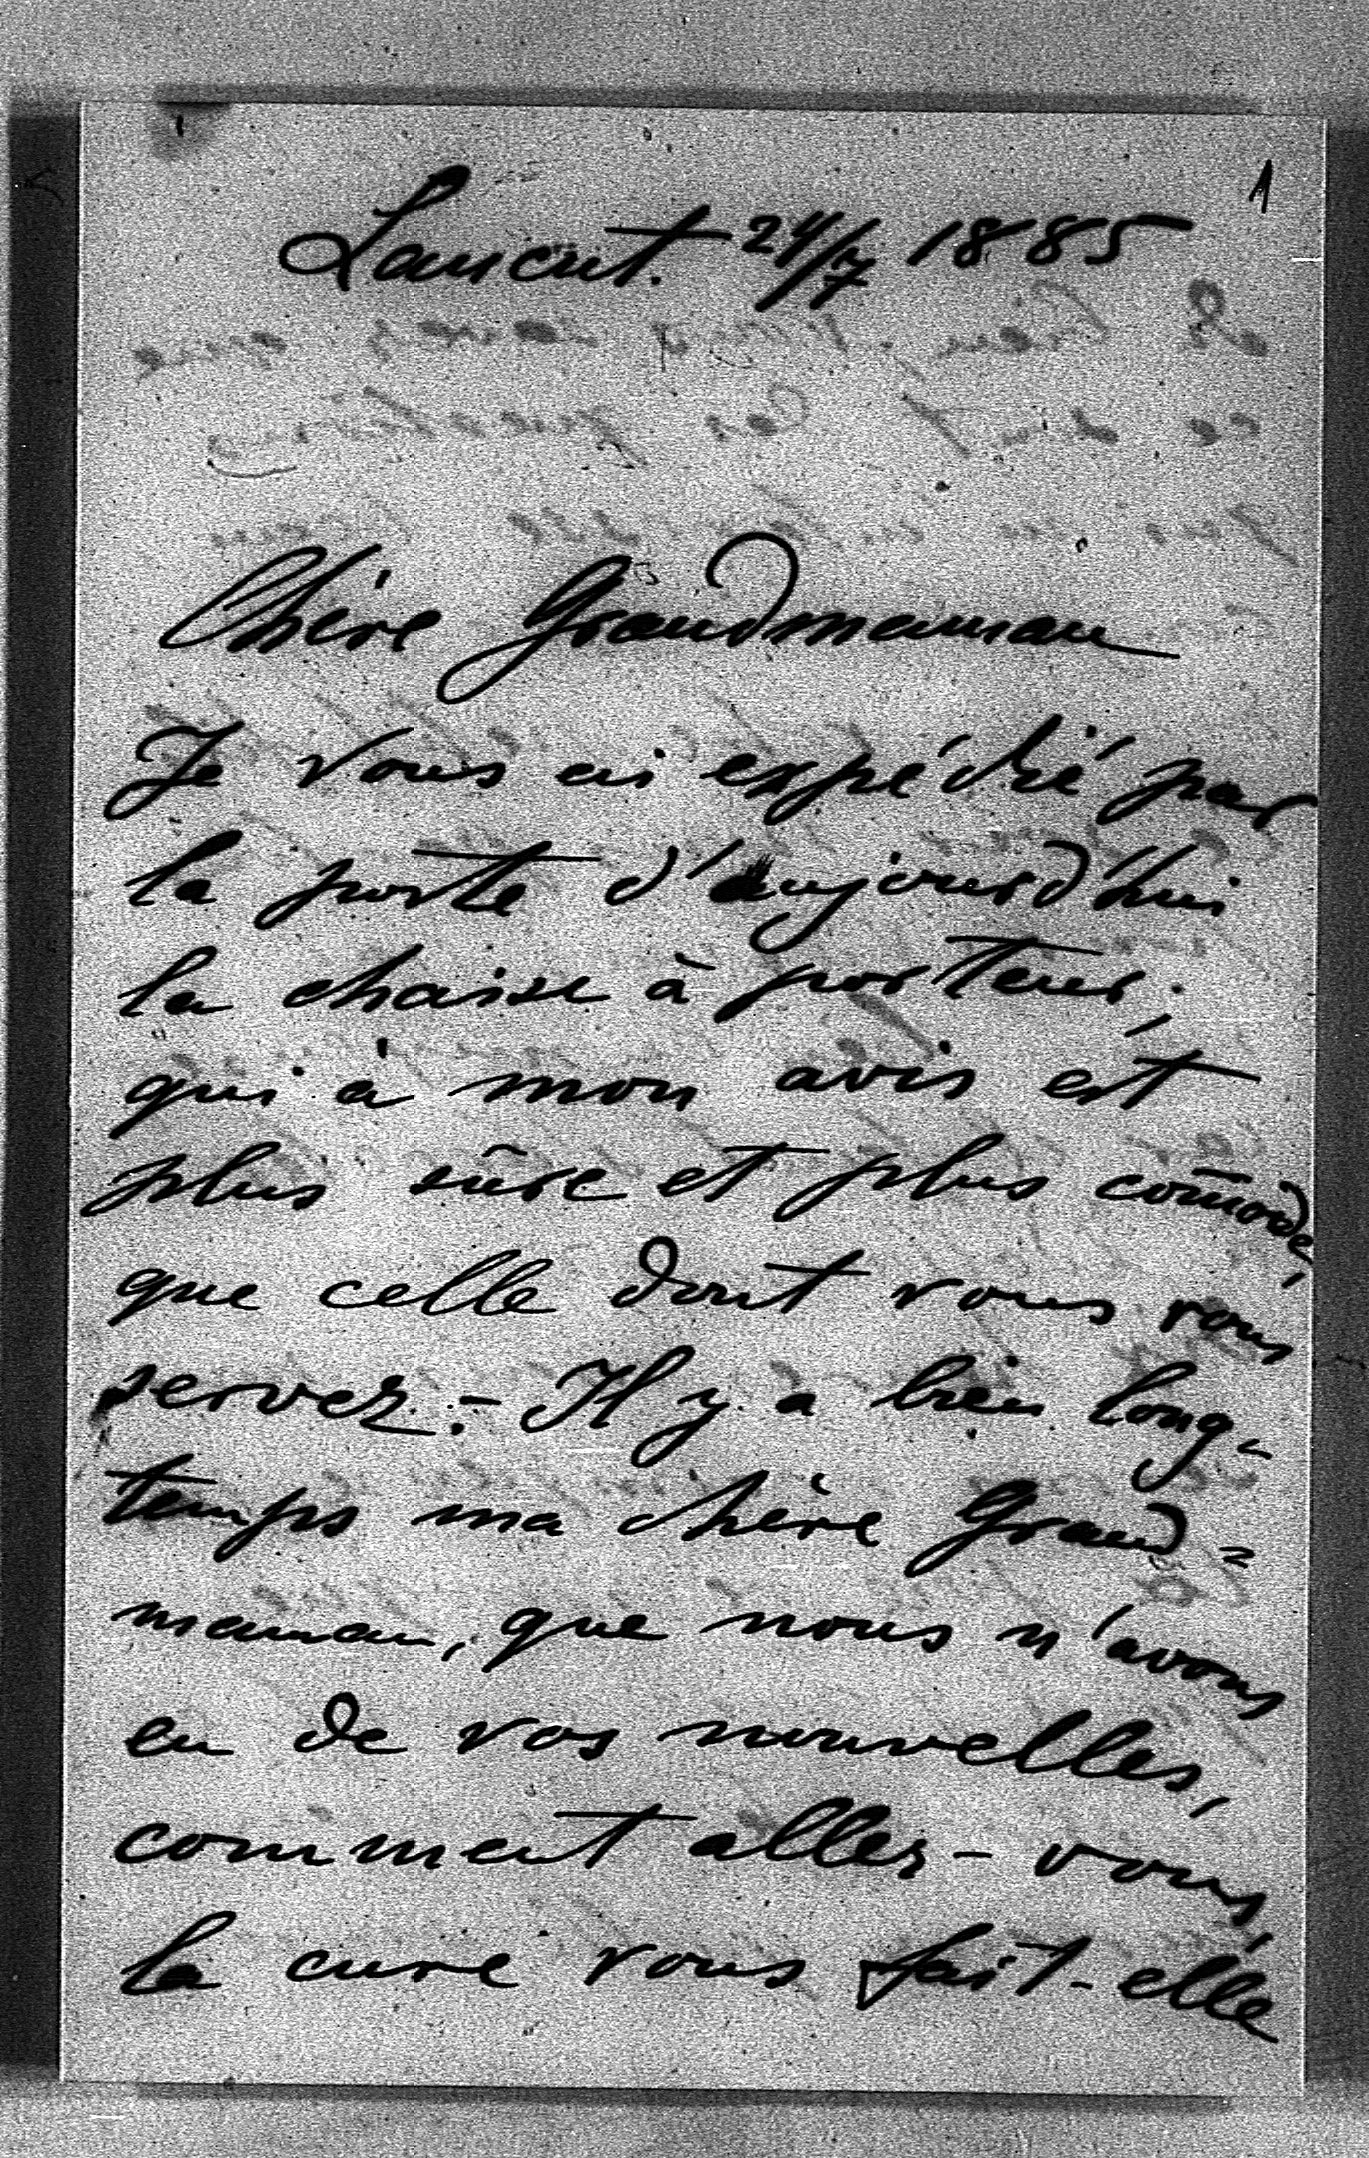 1
Lancut. 24/7 1885
Chère Grandmaman
Je vous ai expédié par
la poste d'aujourd'hui
la chaise à porteur,
qui à mon avis est
plus sûre et plus com̄ode,
que celle dont vous vous
servez. – Il y a bien long-
temps ma chère Grand=
maman, que nous n'avons
eu de vos nouvelles,
comment allez-vous,
la cure vous fait-elle